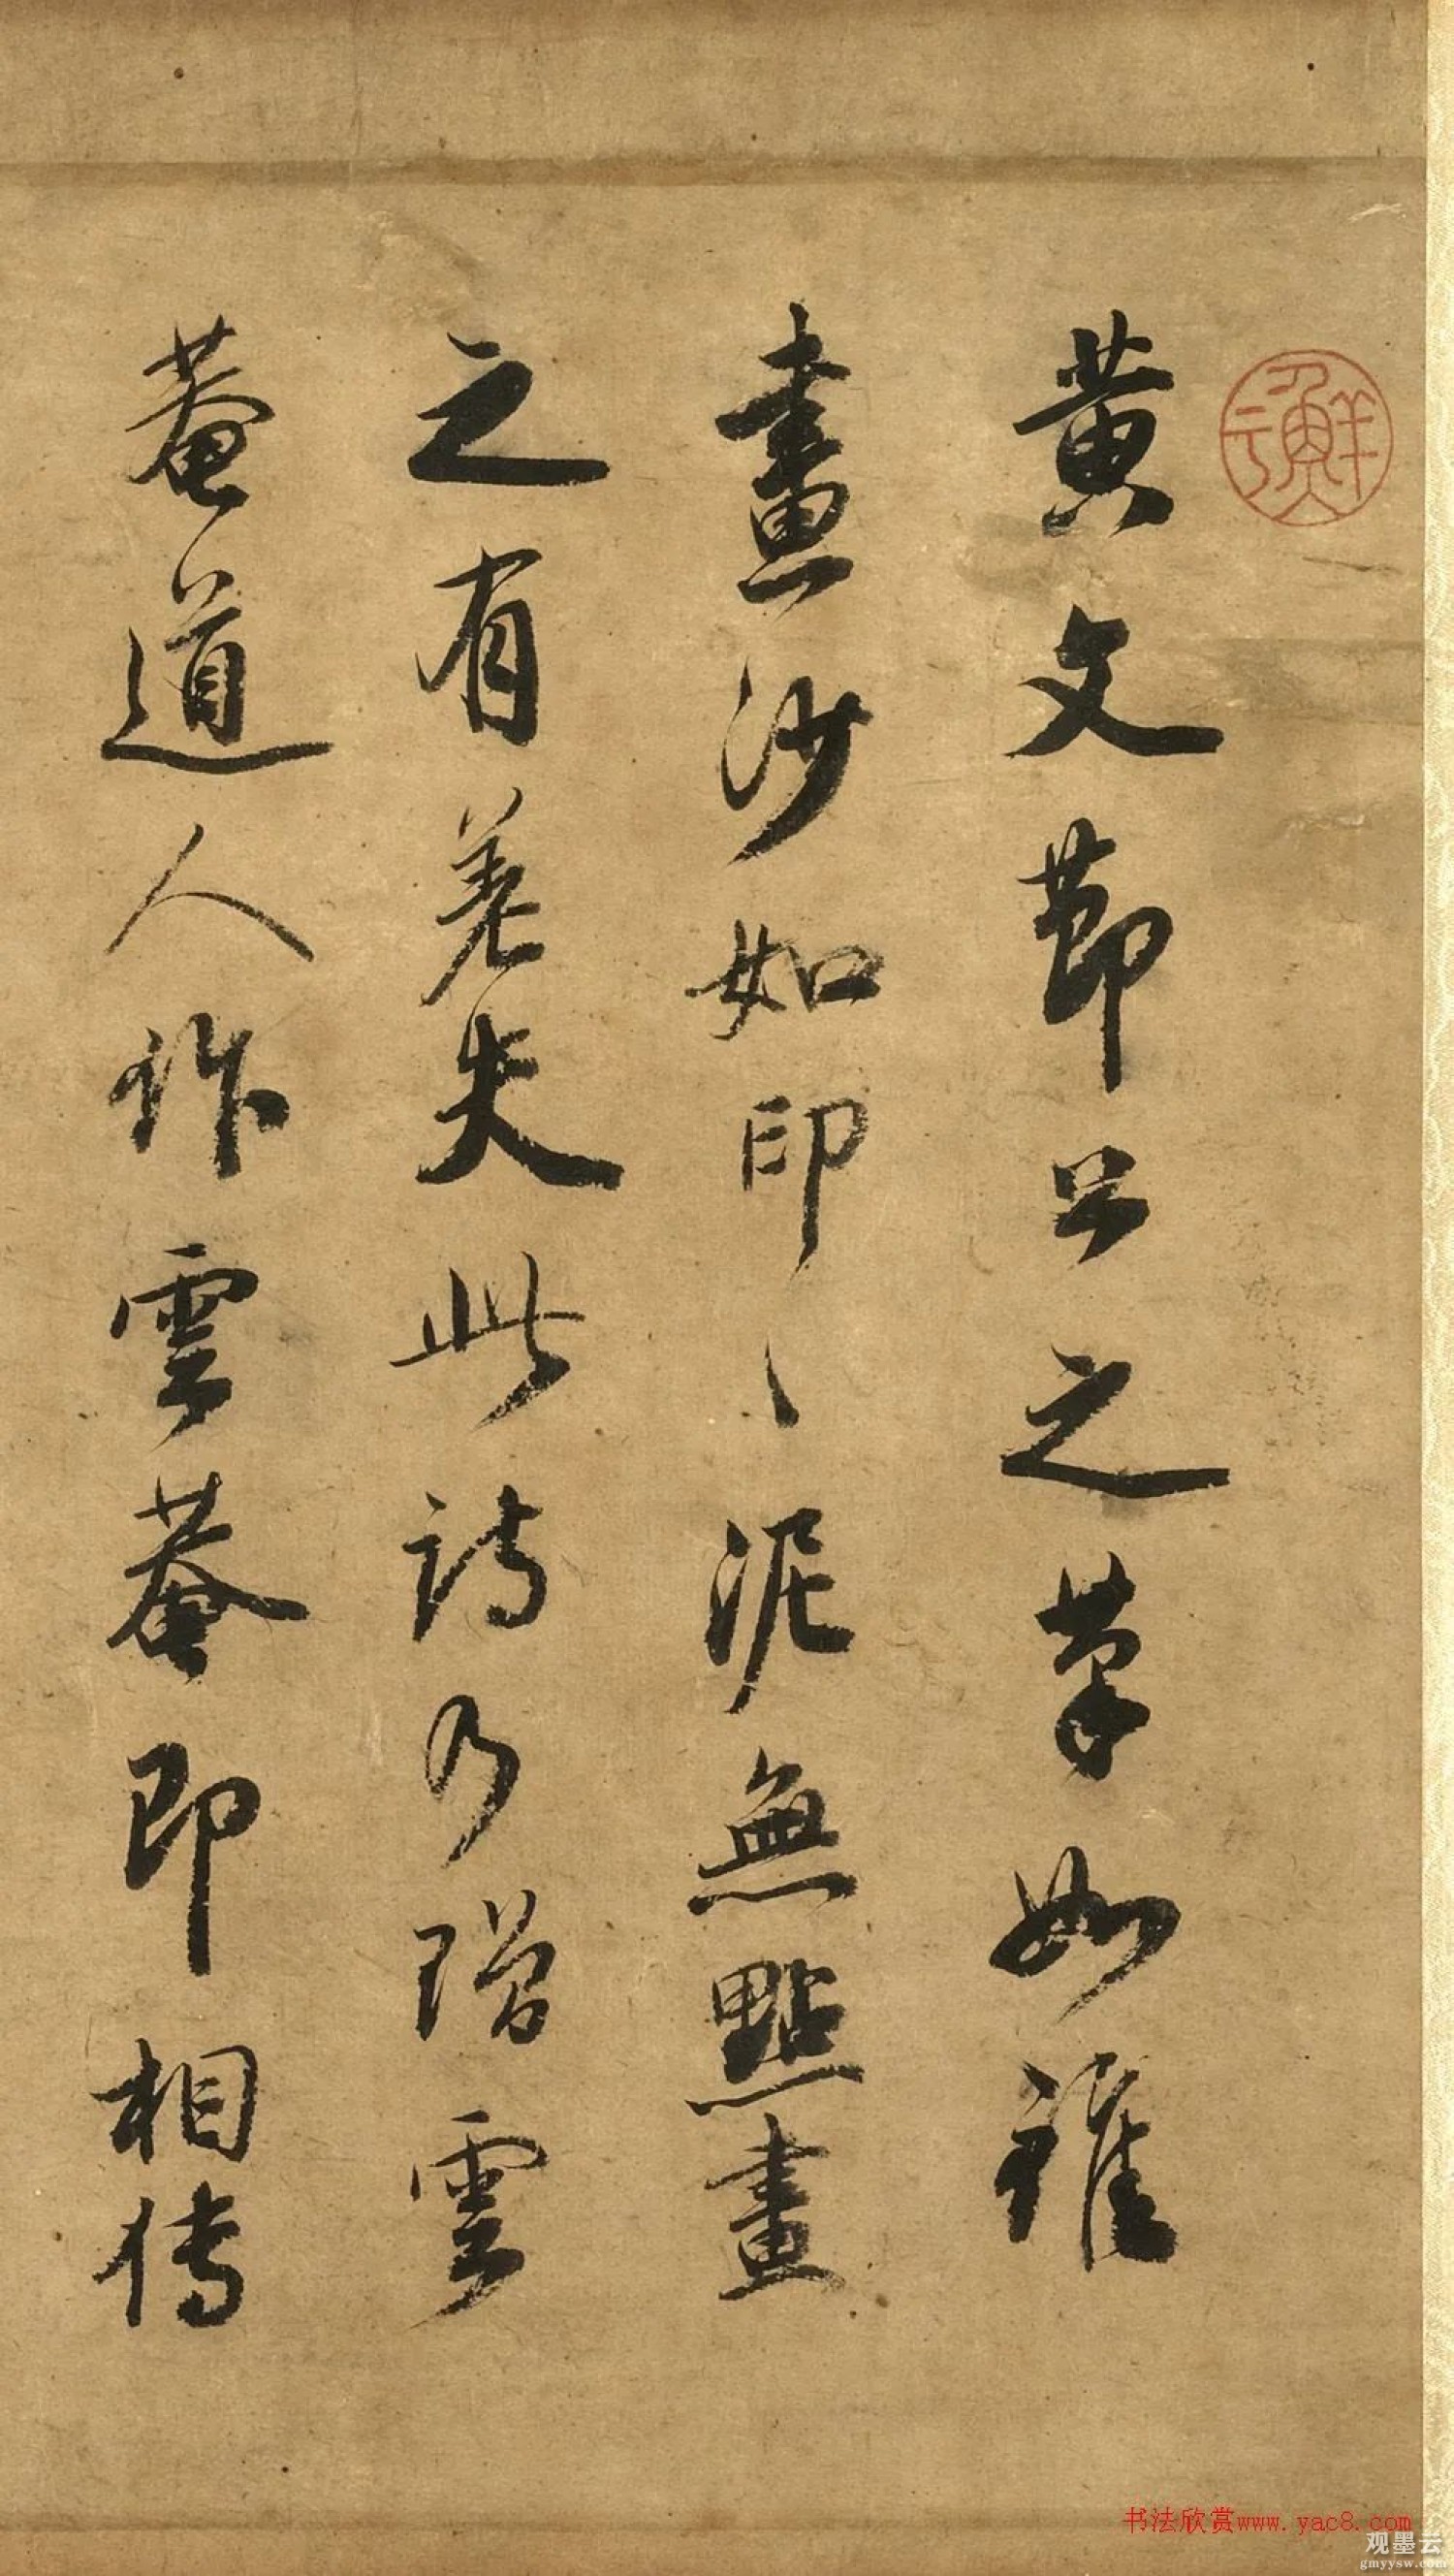 鮮于
黄文節公之筆如錐
畫沙如印〻泥無點畫
之有差失此詩乃贈雲
菴道人作雲菴即相傳
书法欣赏www.yac8.com
观墨云
gmyysw.com